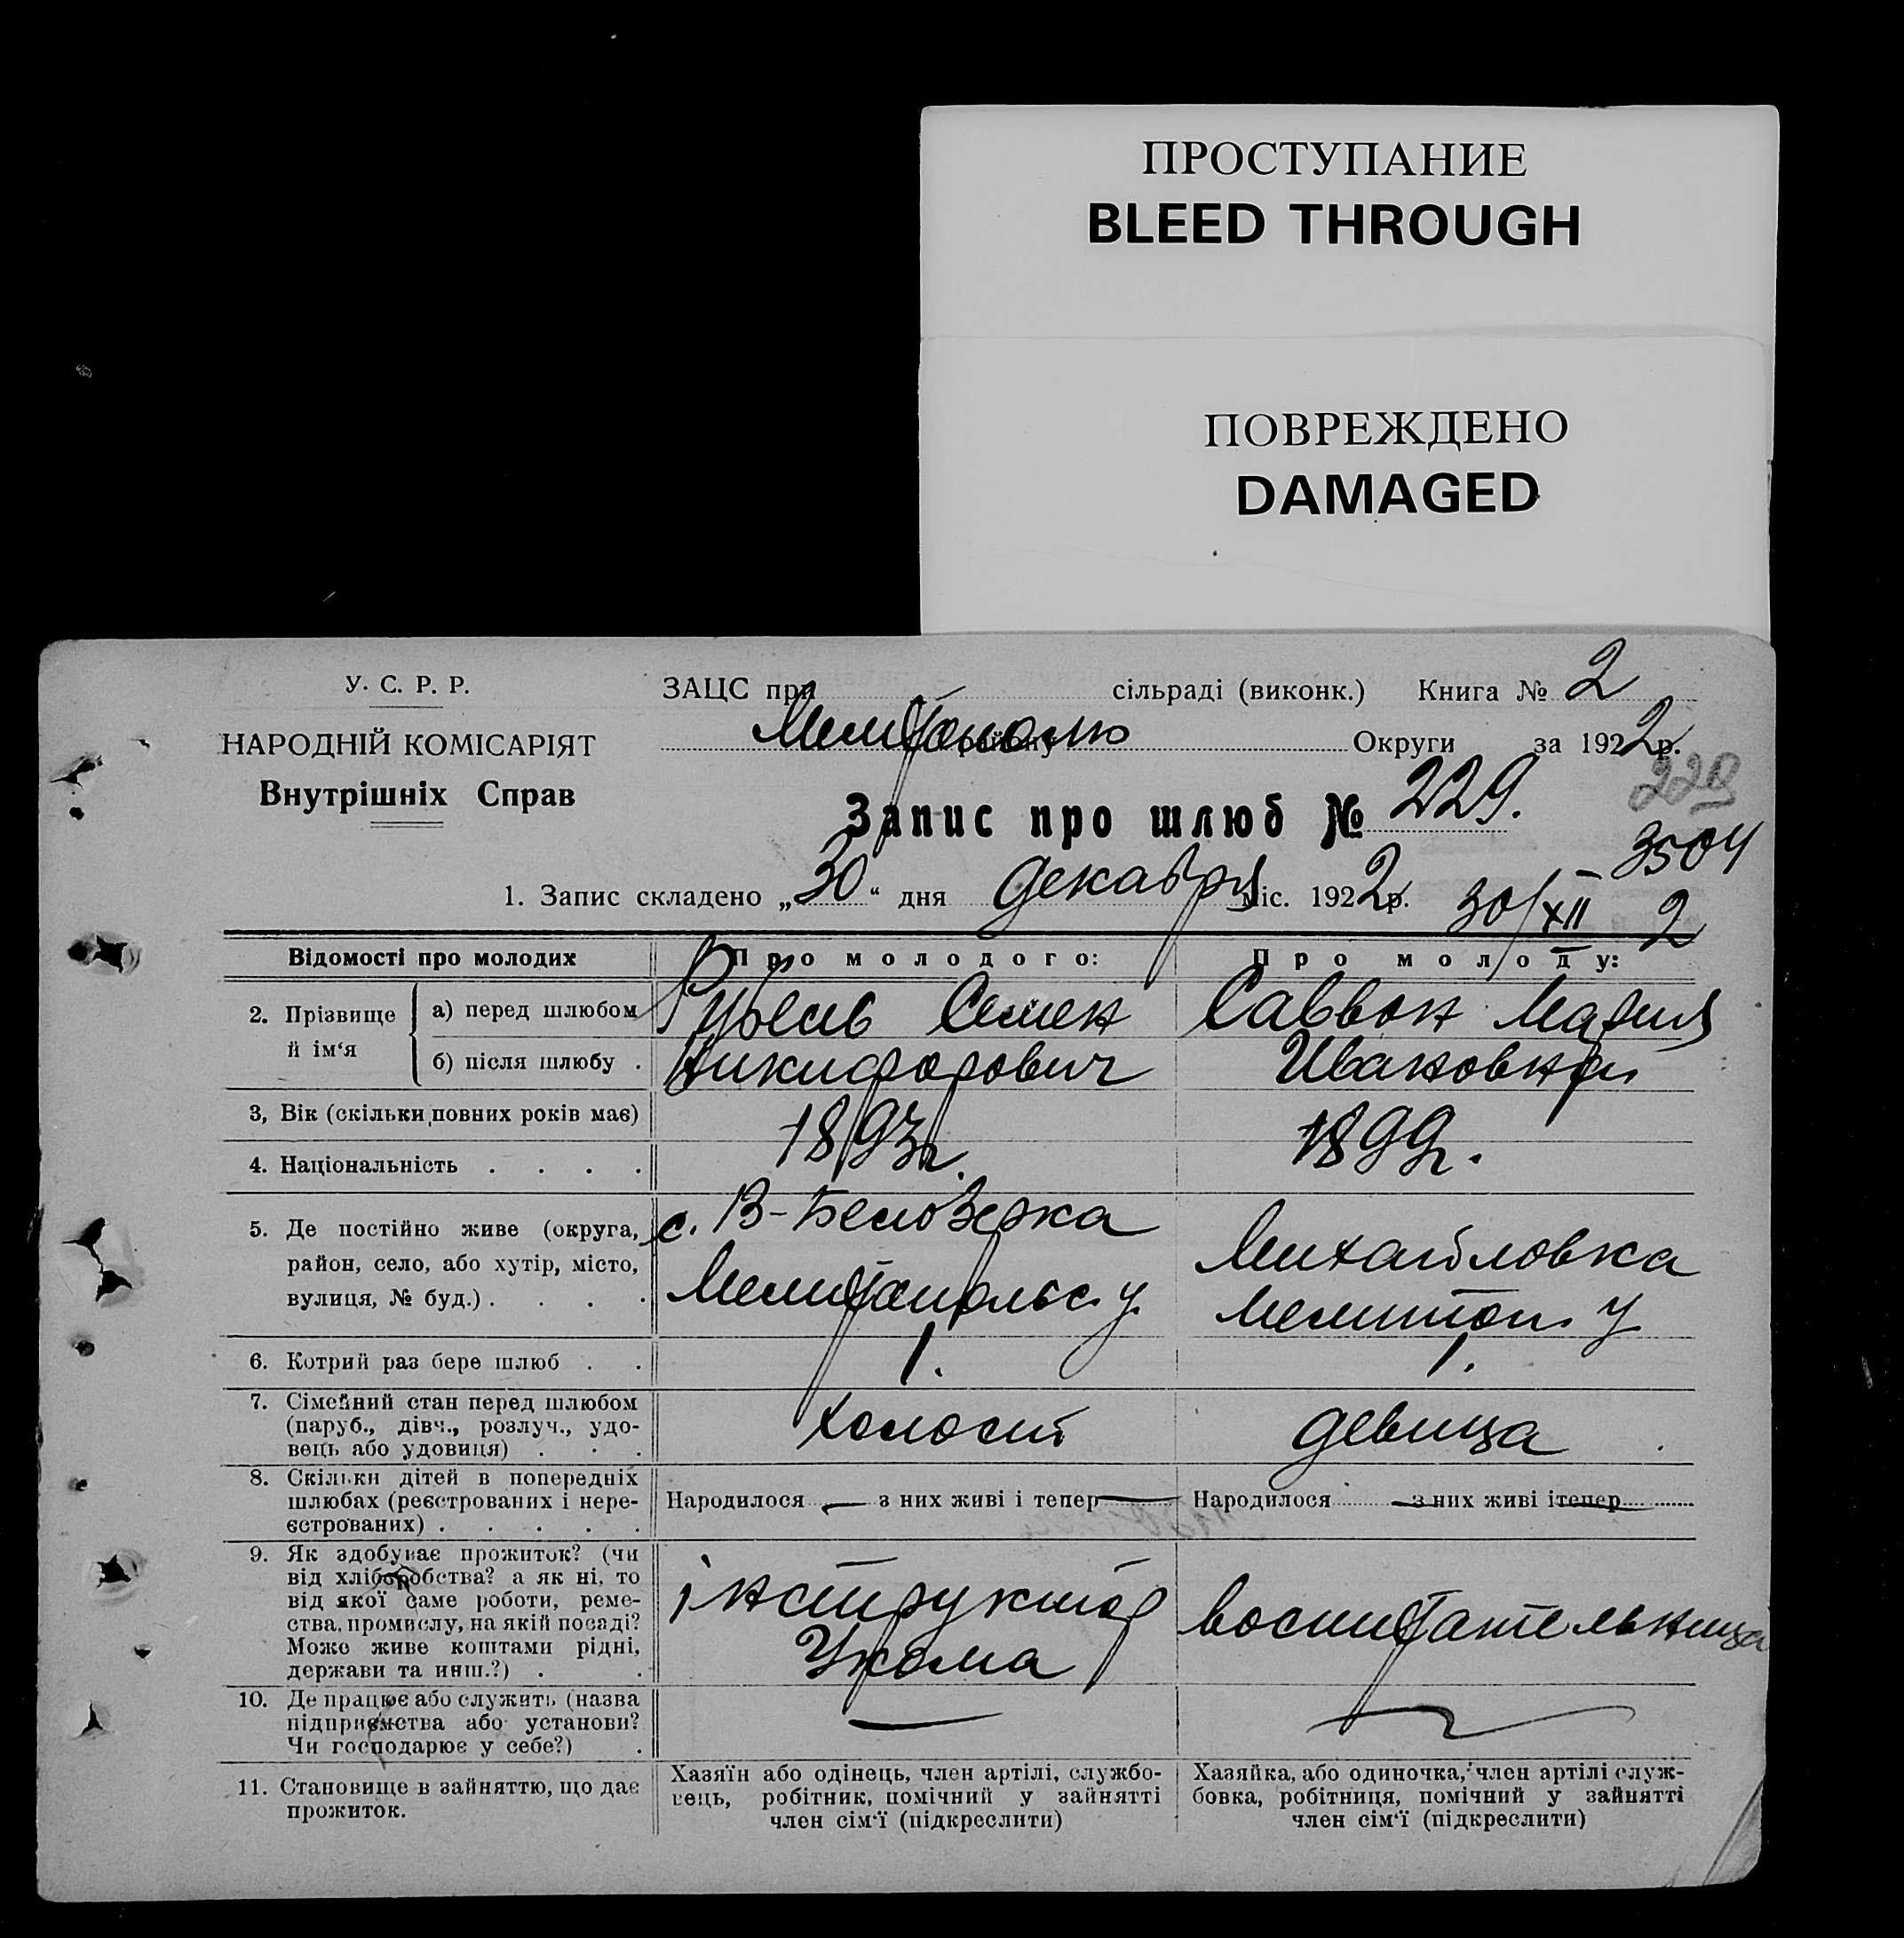 ПРОСТУПАНИЕ
BLEED THROUGH
ПОВРЕЖДЕНО
DAMAGED
У. С. Р. Р.
НАРОДНІЙ КОМІСАРІЯТ
Внутрішніх Справ
ЗАЦС при сільраді (виконк.) Книга № 2
Мелитополю району Округи за 1922 р.
229
Запис про шлюб № 229.
3504
1. Запис складено „30“ дня декабря міс. 1922 р. 30/XII 2
Відомості про молодих Про молодого: Про молоду:
2. Прізвище й ім‘я
а) перед шлюбом Семен Саввон Мария
б) після шлюбу . Никифорович Ивановна
3, Вік (скільки повних років має) 1893г. 1899г.
4. Національність . . . .
5. Де постійно живе (округа, район, село, або хутір, місто, вулиця, № буд.) . . . .
с. В-Белозерка
Мелитопольс. у.
Михайловка
Мелитоп. у
6. Котрий раз бере шлюб . . 1. 1.
7. Сімейний стан перед шлюбом
(паруб., дівч., розлуч., удо-
вець або удовиця) . . .
холост девица
8. Скільки дітей в попередніх
шлюбах (реєстрованих і нере-
єстрованих) . . . . .
Народилося — з них живі і тепер — Народилося — з них живі і тепер
9. Як здобуває прожиток? (чи
від хліборобства? а як ні, то
від якої саме роботи, реме-
ства, промислу, на якій посаді?
Може живе коштами рідні,
держави та инш.?) . .
інструктор
Укома
воспитательница
10. Де працює або служить (назва
підприємства або установи?
Чи господарює у себе?) .
11. Становище в зайняттю, що дає
прожиток.
Хазяїн або одінець, член артілі, службо-
вець, робітник, помічний у зайнятті
член сім‘ї (підкреслити)
Хазяйка, або одиночка, член артілі служ-
бовка, робітниця, помічний у зайнятті
член сім‘ї (підкреслити)